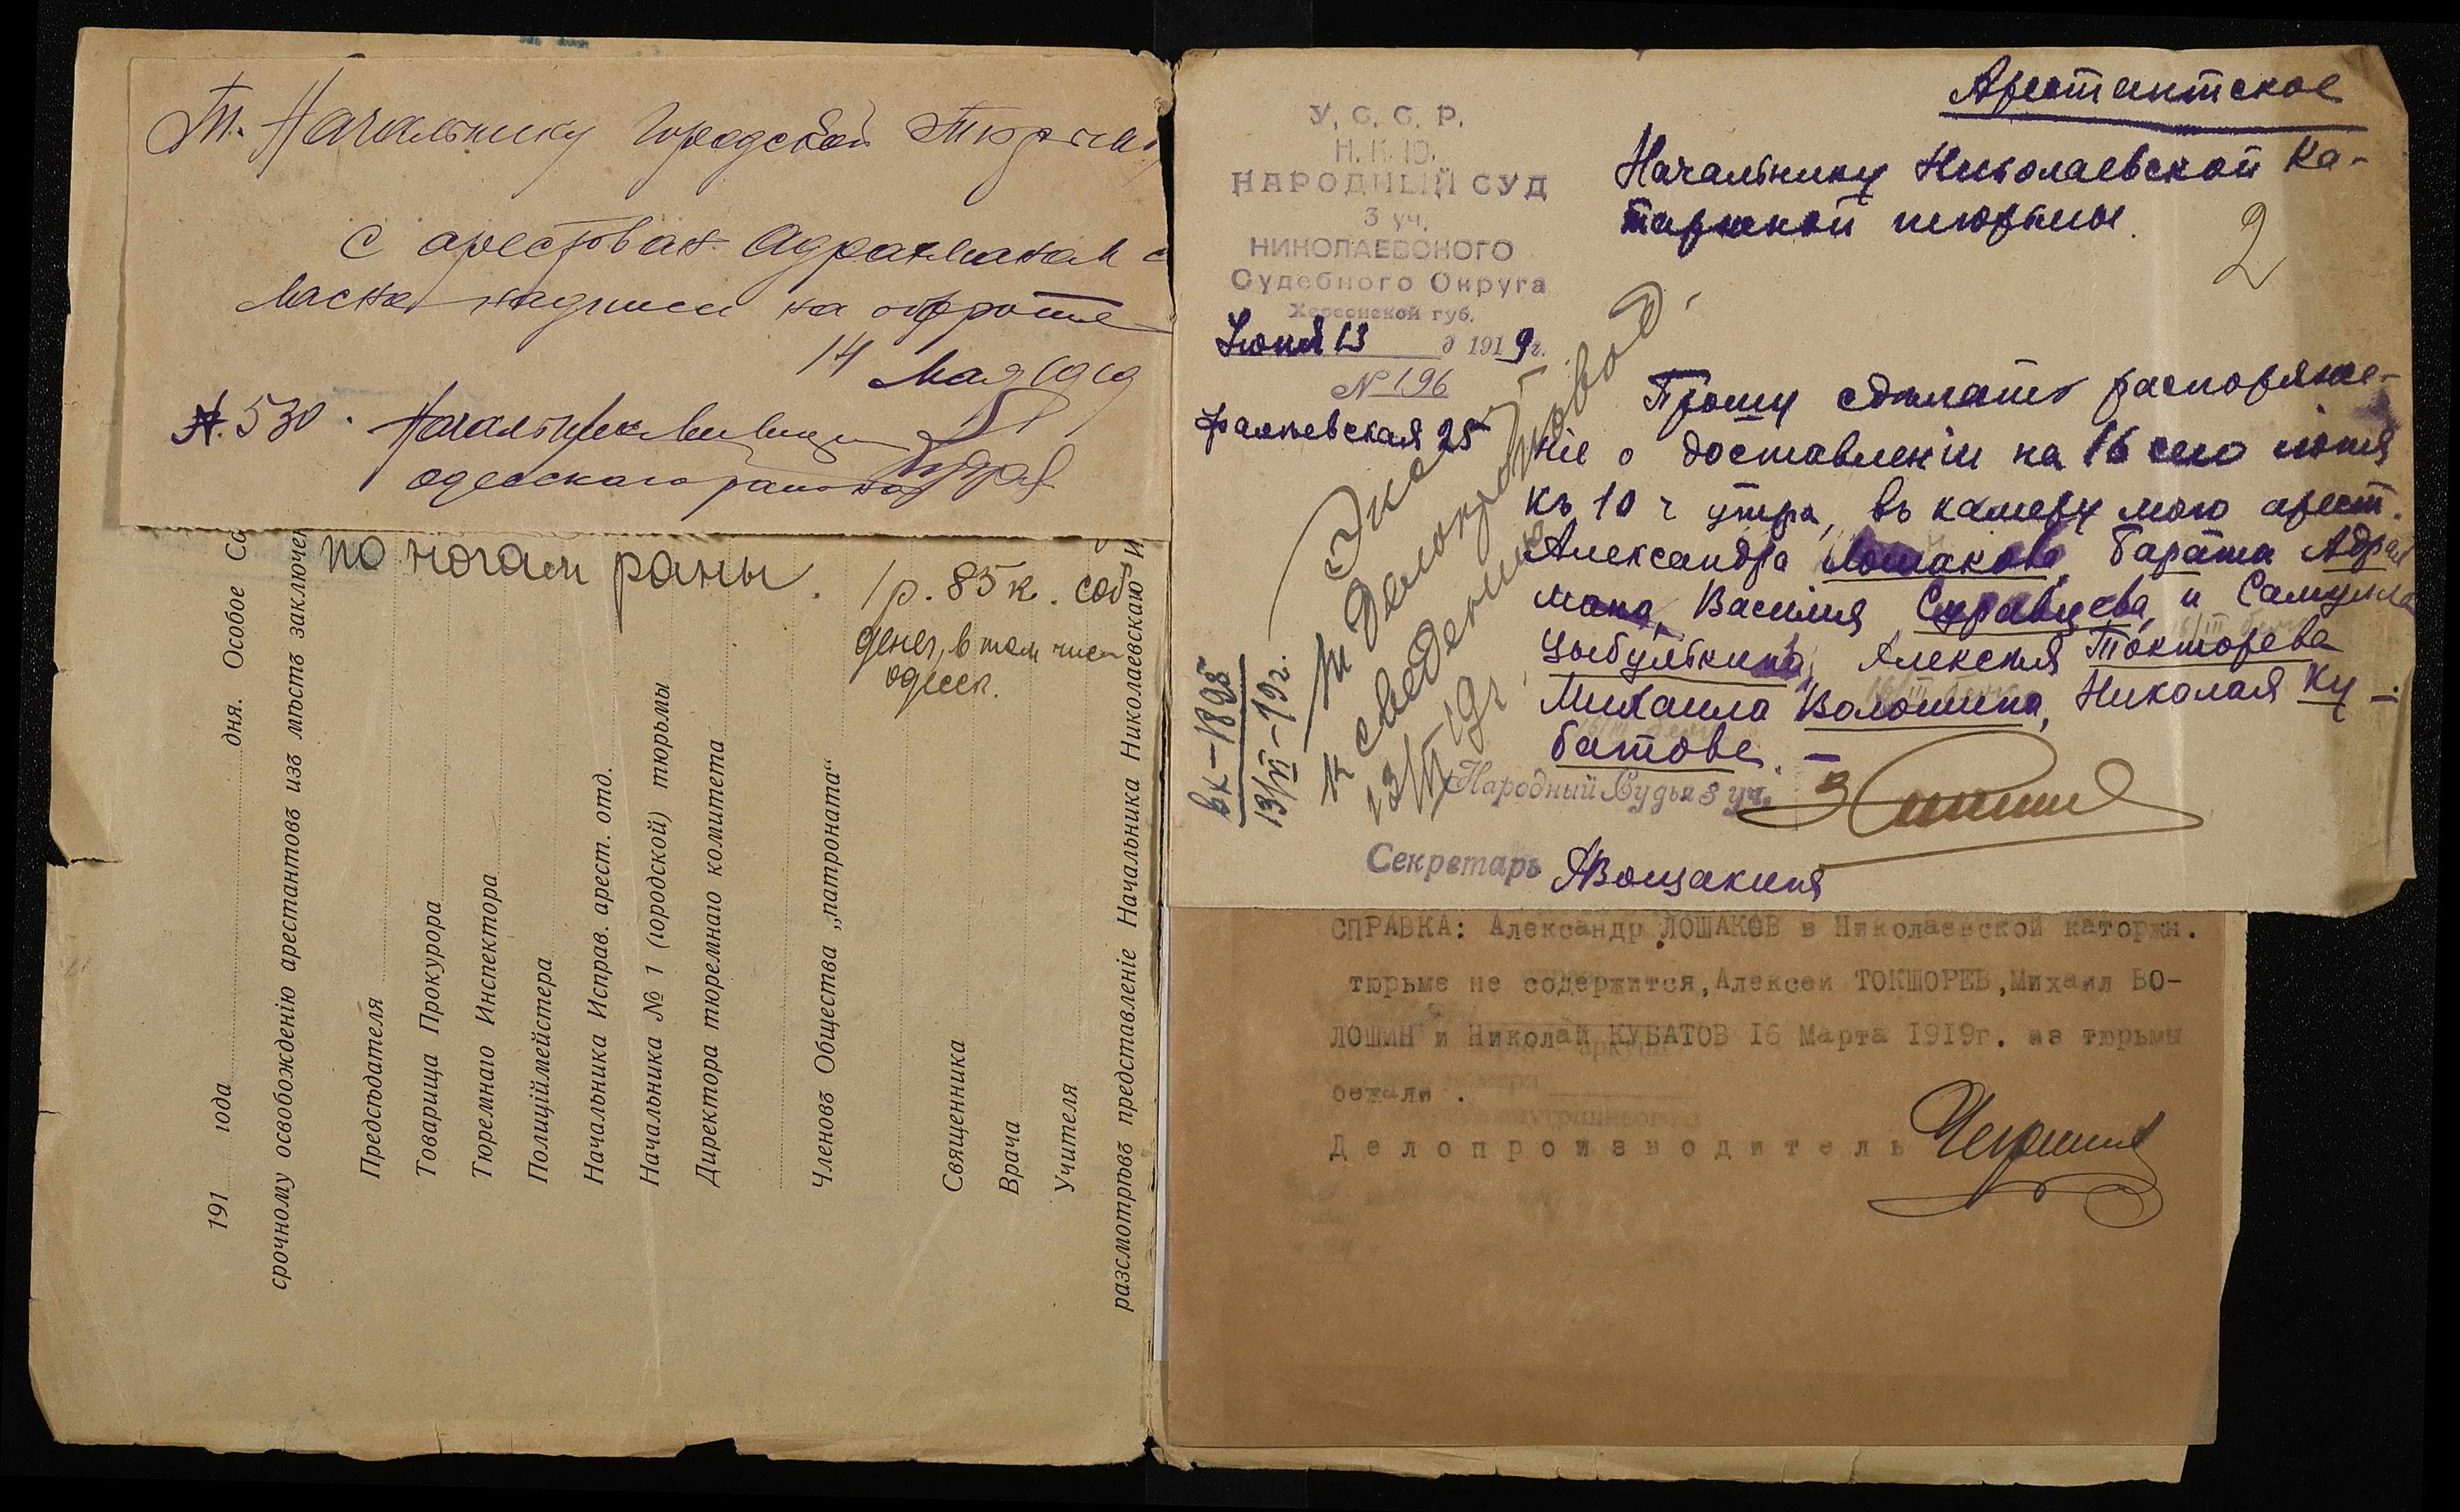 Т. Начальнику Городской Тюрьмы
С арестован. Адрахманом с
надписи на обороте
14 Мая 1919
№. 530.
Начальник Милиции
одесского района
по ногам раны.
1 р. 85 к. соб
денег, в том числ
одесск.
191 года дня. Особое Со
срочному освобожденію арестантовъ изъ мѣстъ заключен
Предсѣдателя
Товарища Прокурора
Тюремнаго Инспектора
Полиціймейстера
Начальника Исправ. арест. отд.
Начальника № 1 (городской) тюрьмы
Директора тюремнаго комитета
Членовъ Общества „патроната“
Священника
Врача
Учителя
разсмотрѣвъ представленіе Начальника Николаевскаго И
Арестантское
У. С. С. Р.
Н. К. Ю.
НАРОДНЫЙ СУД
3 уч.
НИКОЛАЕВСКОГО
Судебного Округа
Херсонской губ.
Іюня 13 д 1919 г.
№ 196
25
Начальнику Николаевской Ка-
торжной тюрьмы.
2
Прошу сдѣлать распоряже-
ніе о доставленіи на 16 сего іюня
къ 10 ч утра, въ камеру мою арест.
Александра Лошакова, Барата Адрах
мана, Василия и Самуила
Цыбулькина, Алексея Токшорева
Михаила Волошина, Николая Ку-
батова. —
Народный Судья 3 уч.
Секретарь АВощакина
Делопроизвод.
к сведению
13/VI 19 г.
вх-1895
13/VI-19 г.
СПРАВКА: Александр ЛОШАКОВ в Николаевской каторжн.
тюрьме не содержится, Алексей ТОКШОРЕВ, Михаил ВО-
ЛОШИН и Николай КУБАТОВ 16 Марта 1919г. из тюрьмы
бежали .
Делопроизводитель